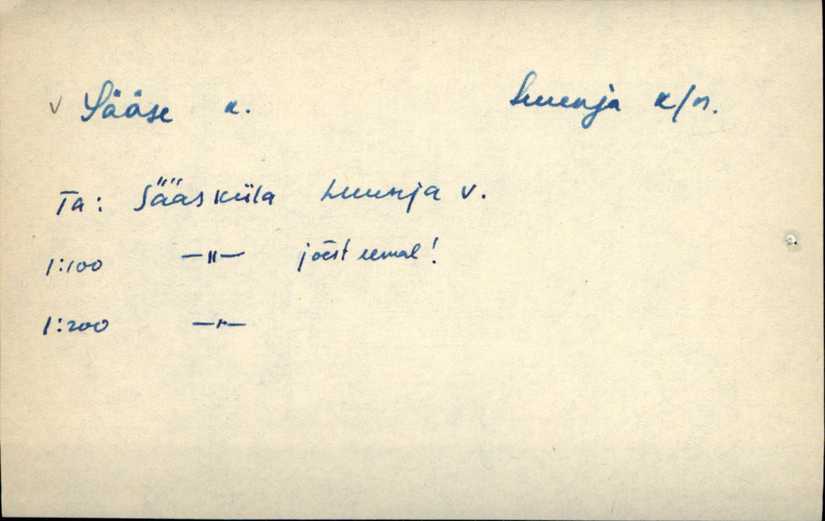 v Sääse k. Luunja k/n.
Ta: Sääsküla Luunja v.
1:100 —"— jõest eemal!
1:200 —"—